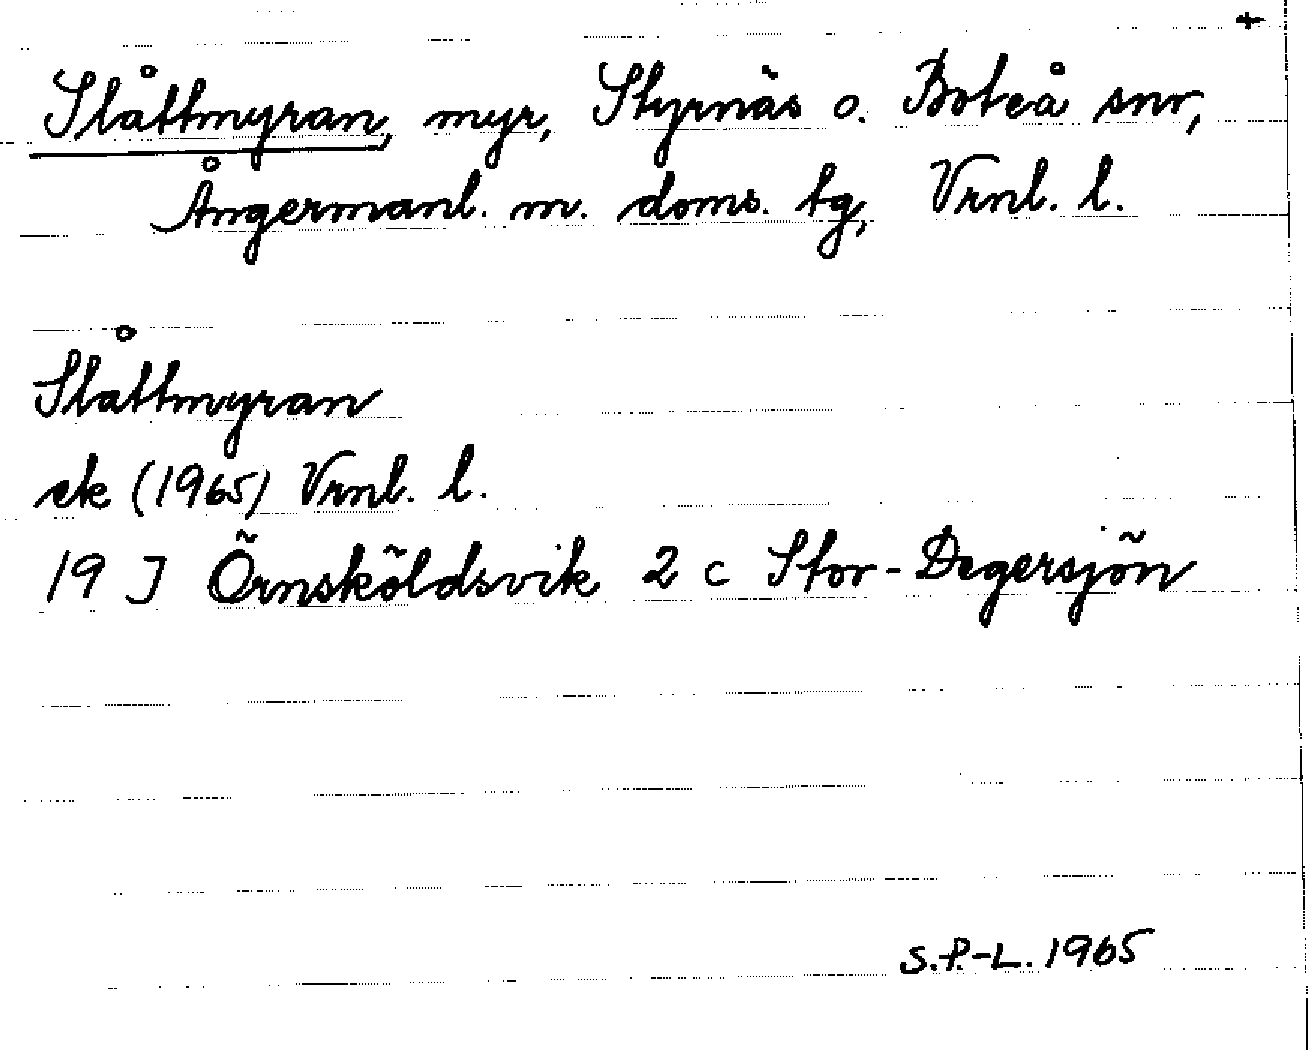 +
Slåttmyran, myr, Styrnäs o. Boteå snr,
Ångermanl. m. doms. tg, Vrnl. l.
Slåttmyran
ek (1965) Vrnl. l.
19 J Örnsköldsvik 2 c Stor-Degersjön
S.P.-L. 1965